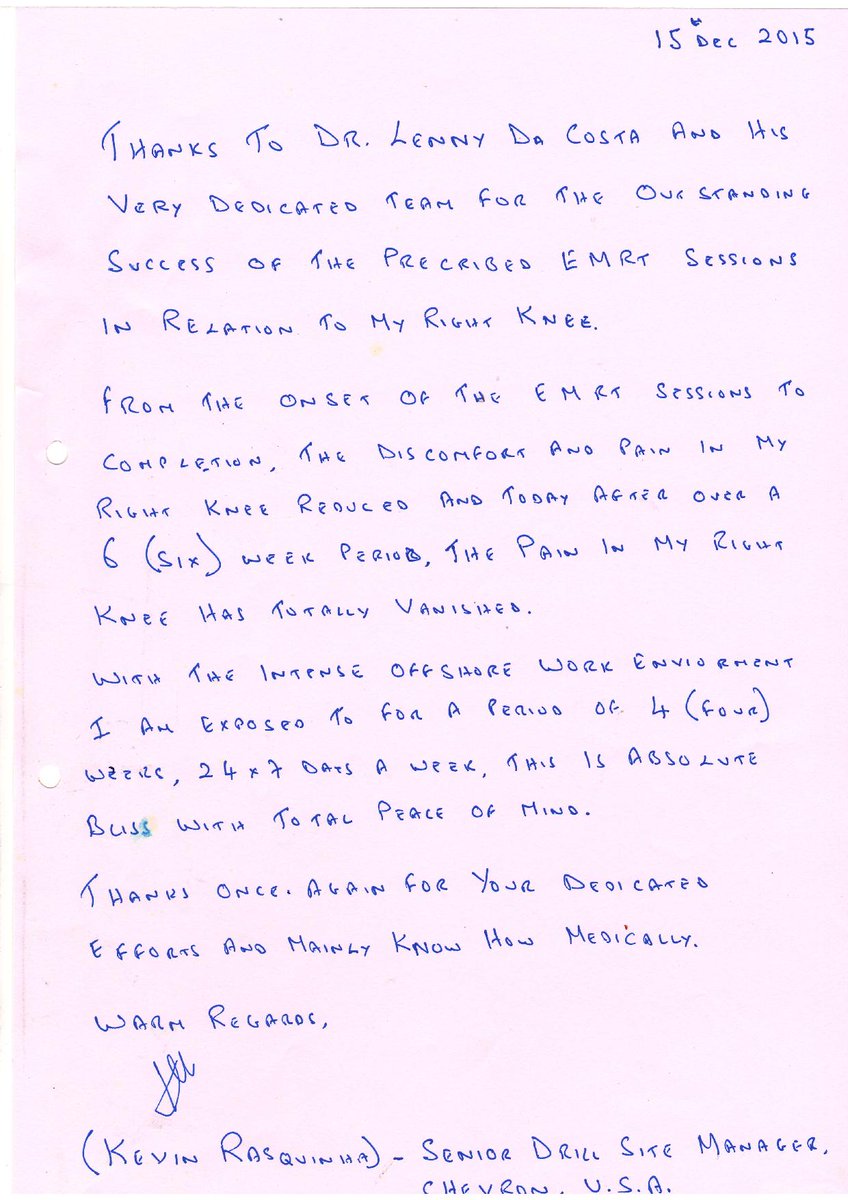 15th Dec 2015
THANKS TO DR. LENNY DA COSTA AND HIS
VERY DEDICATED TEAM FOR THE OUTSTANDING
SUCCESS OF THE PRECRIBED EMRT SESSIONS
IN RELATION TO MY RIGHT KNEE.
FROM THE ONSET OF THE EMRT SESSIONS TO
COMPLETION, THE DISCOMFORT AND PAIN IN MY
RIGHT KNEE REDUCED AND TODAY AFTER OVER A
6 (SIX) WEEK PERIOD, THE PAIN IN MY RIGHT
KNEE HAS TOTALLY VANISHED.
WITH THE INTENSE OFFSHORE WORK ENVIORMENT
I AM EXPOSED TO FOR A PERIOD OF 4 (FOUR)
WEEKS, 24x7 DAYS A WEEK, THIS IS ABSOLUTE
BLISS WITH TOTAL PEACE OF MIND.
THANKS ONCE. AGAIN FOR YOUR DEDICATED
EFFORTS AND MAINLY KNOW HOW MEDICALLY.
WARM REGARDS,
(KEVIN RASQUINHA) - SENIOR DRILL SITE MANAGER,
CHEVRON, U.S.A.